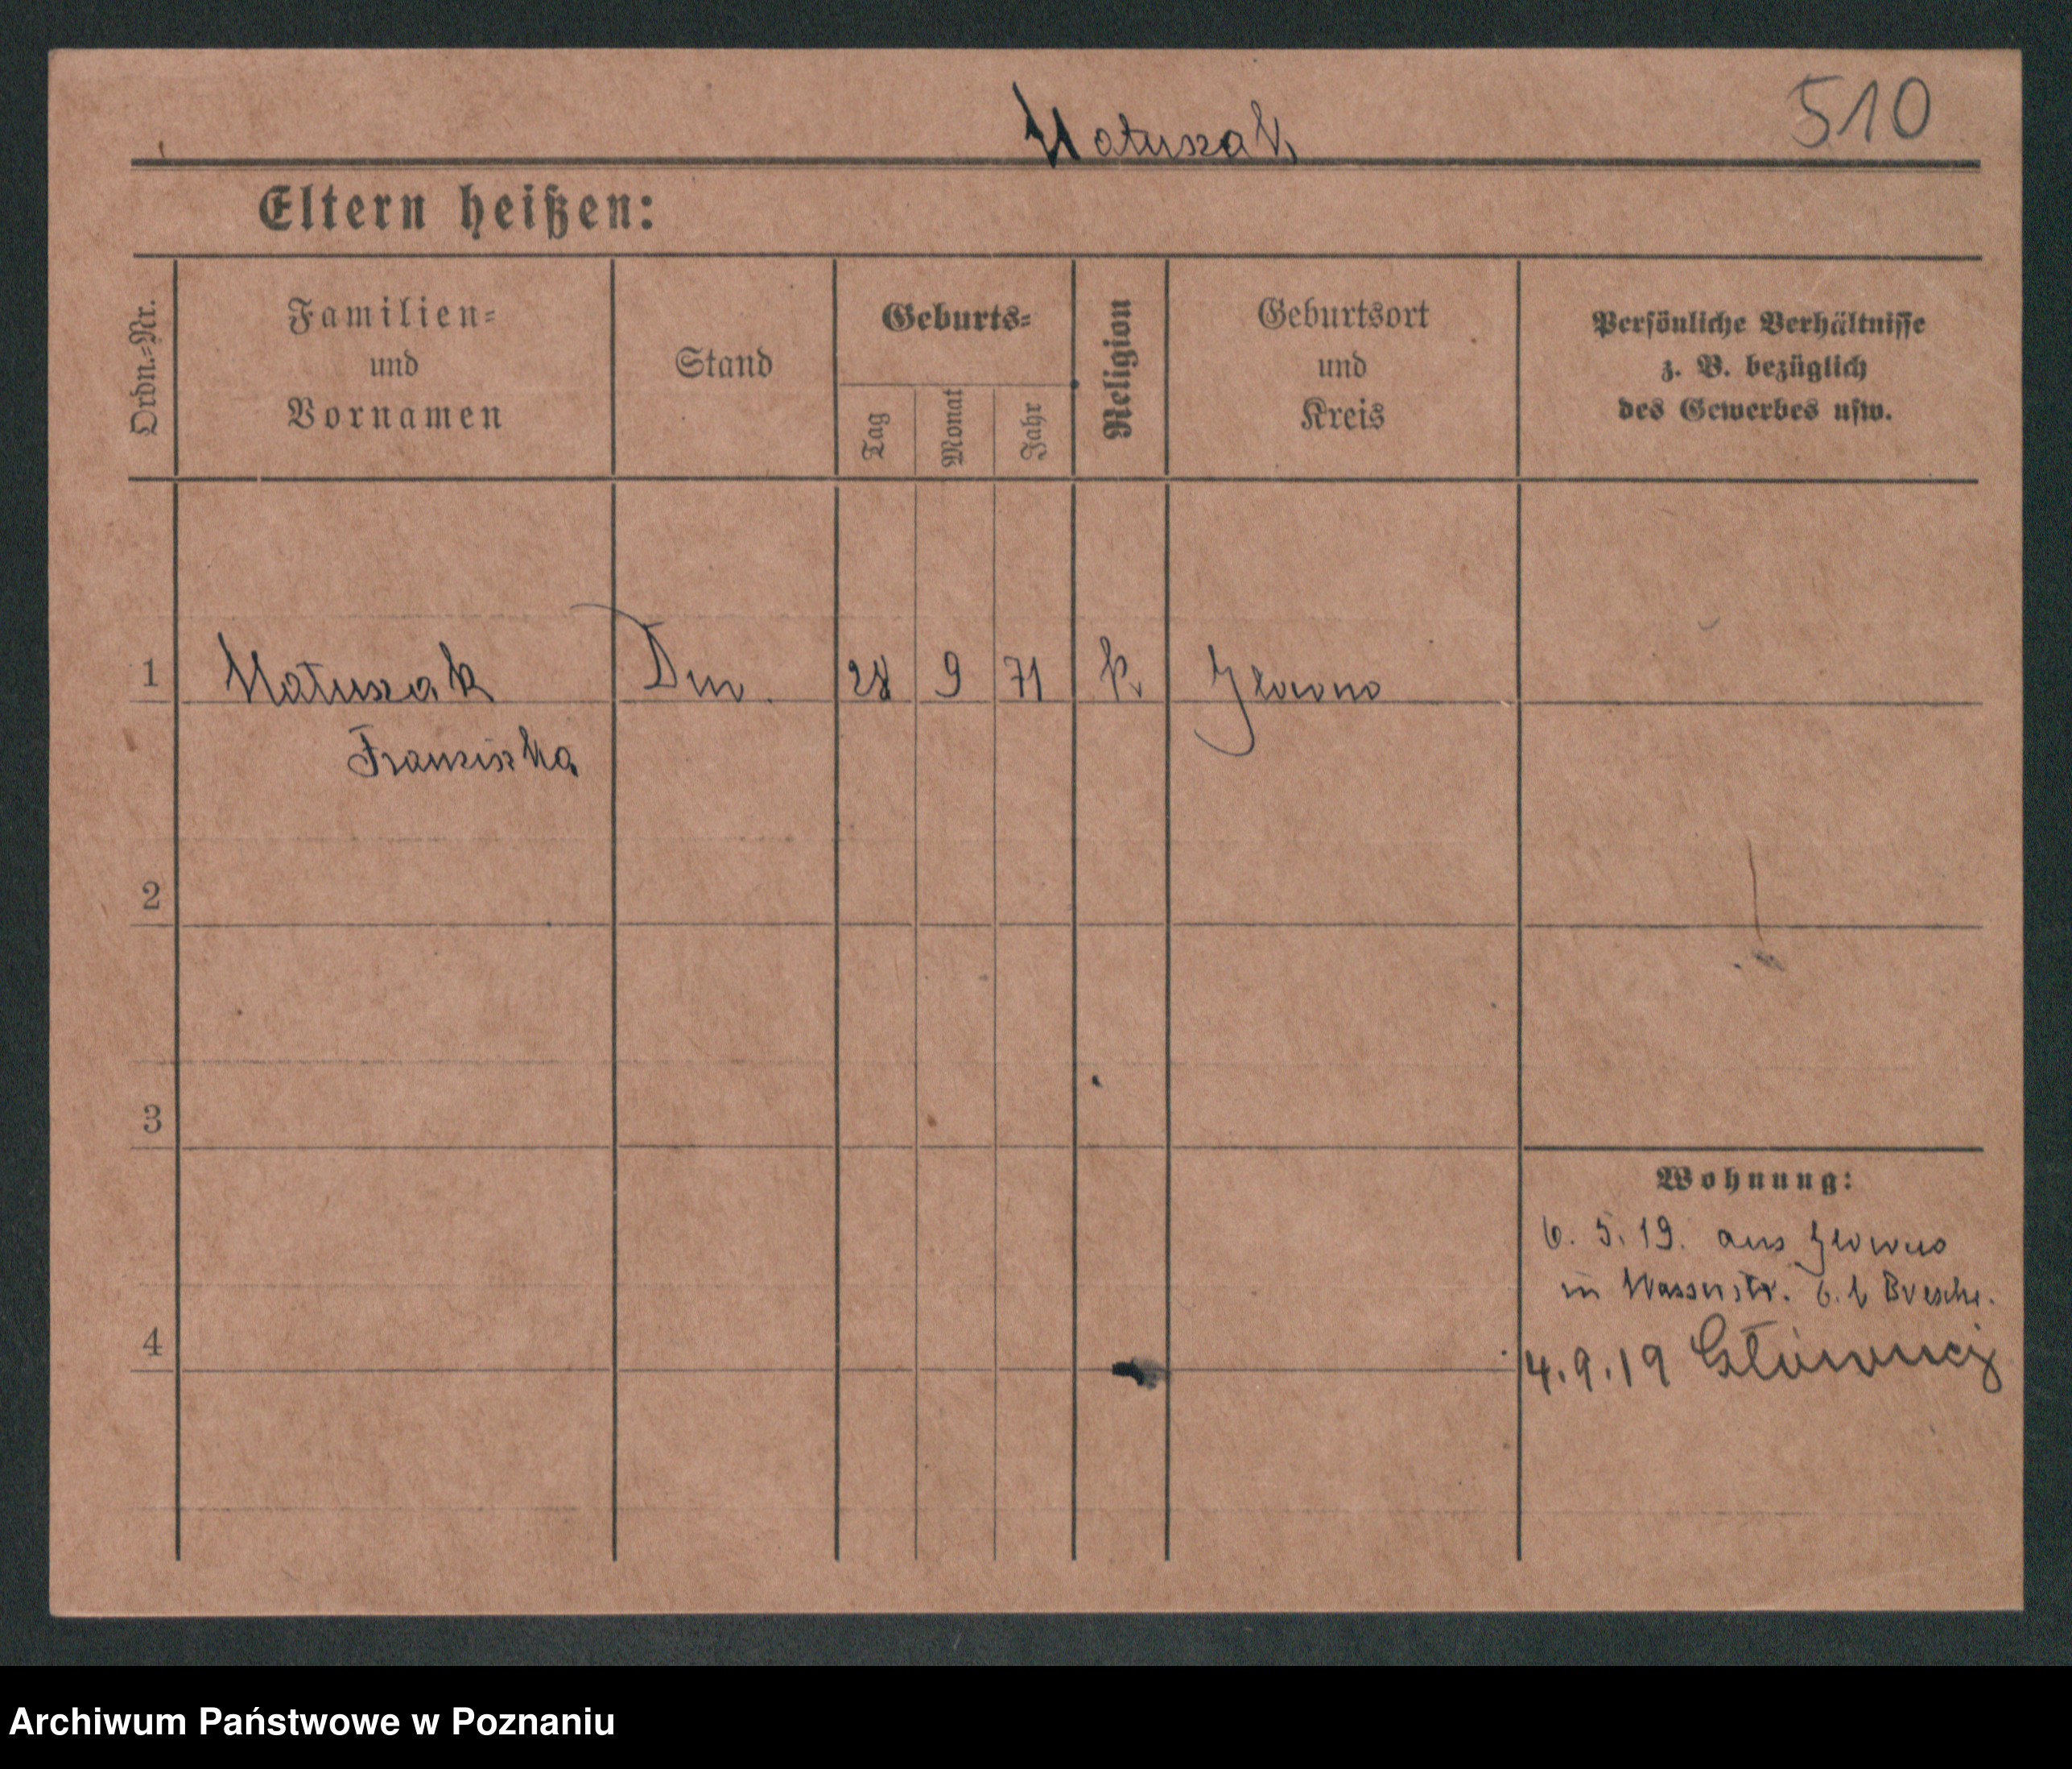 Matuszak
510
Eltern heißen:
Ordn.-Nr.
Familien-
und
Vornamen
Stand
Geburts-
Tag
Monat
Jahr
Religion
Geburtsort
und
Kreis
Persönliche Verhältnisse
z. B. bezüglich
des Gewerbes usw.
1 Matuszak 28 9 71 k.
Franziszka
2
3
Wohnung:
6. 5. 19. aus
in Wasserstr. b.
4
4.9.19
Archiwum Państwowe w Poznaniu